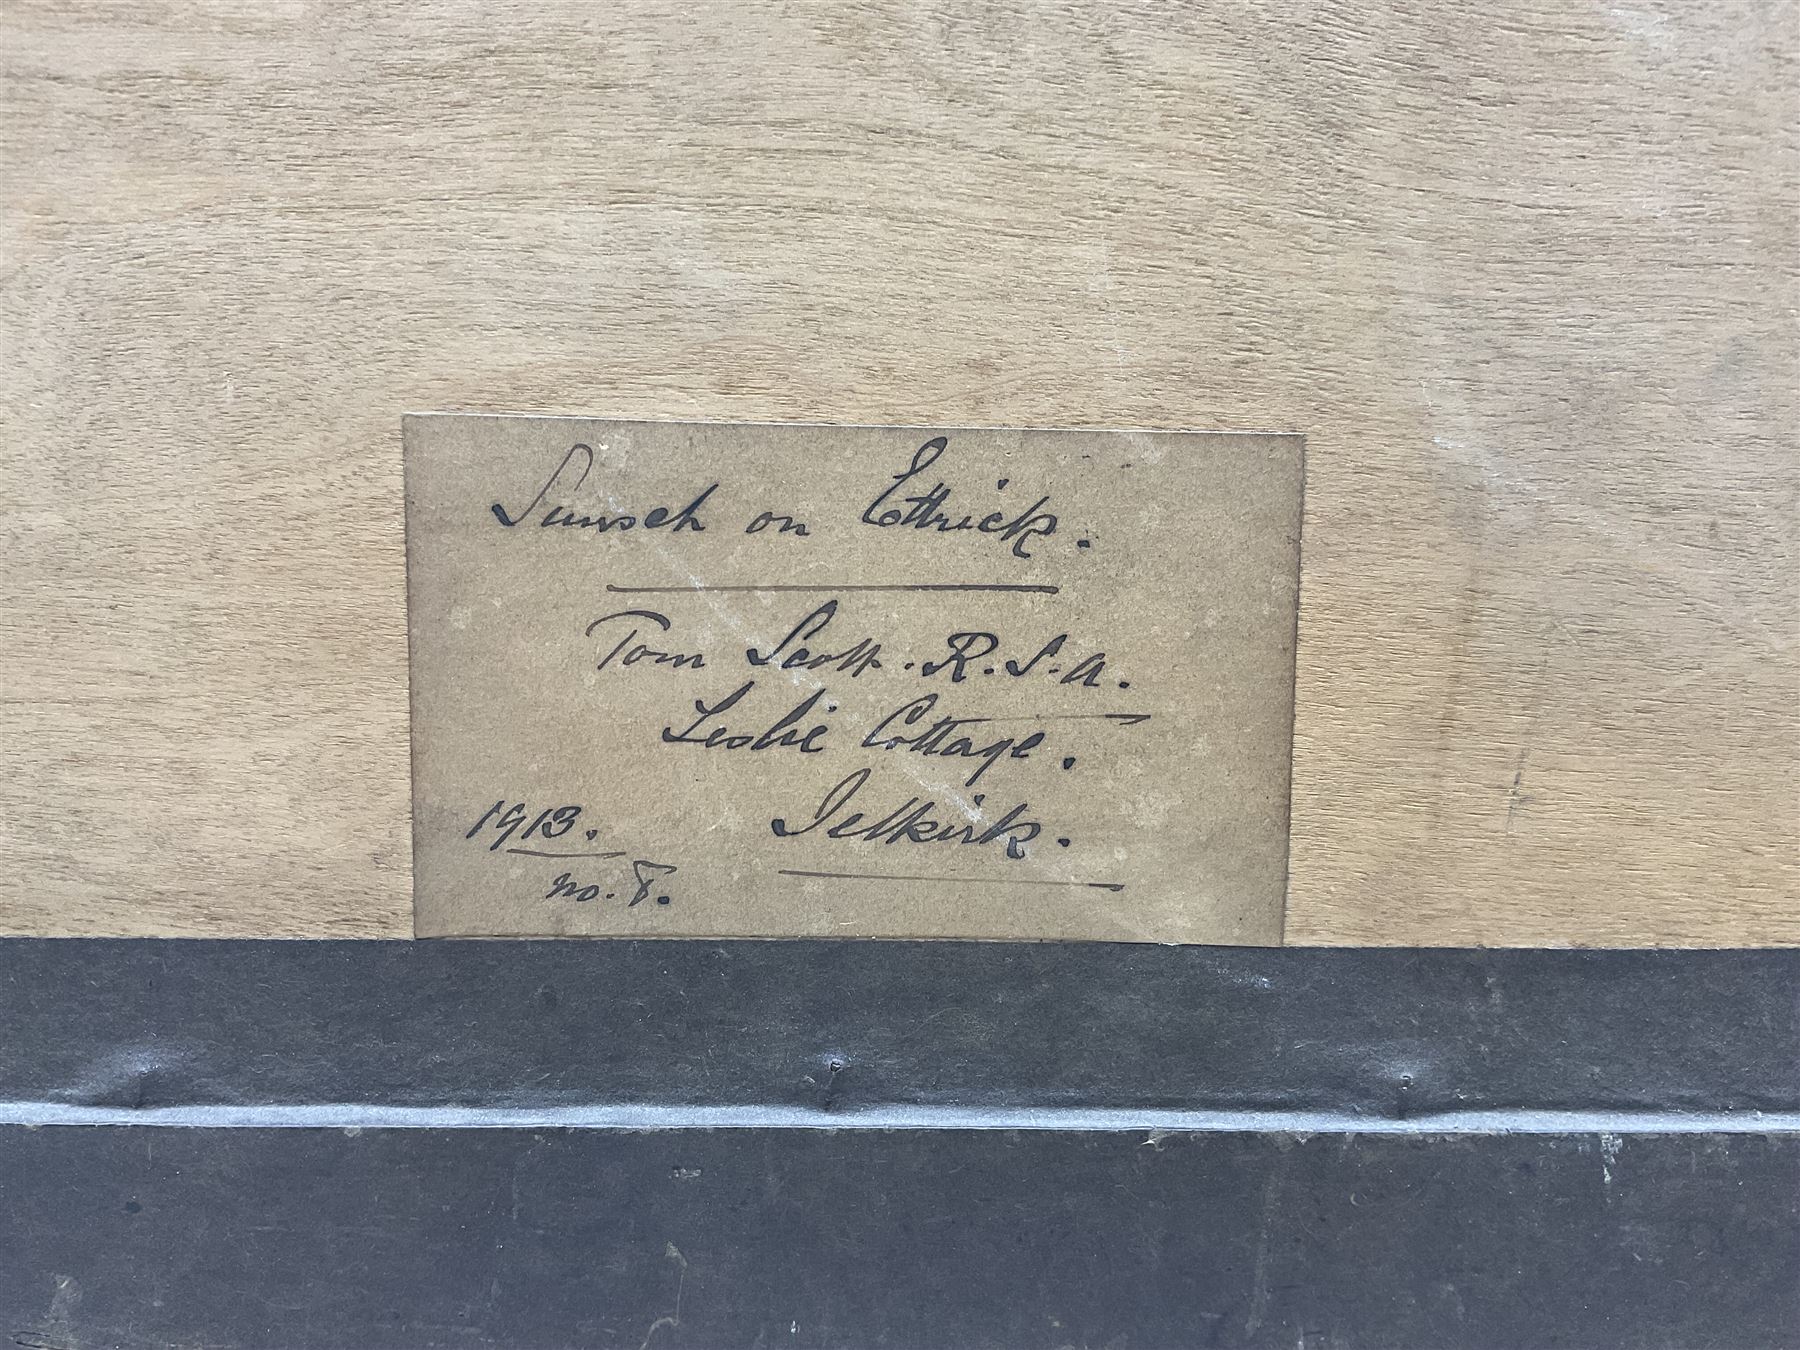 Sunset on Ettrick.
Tom Scott. R.S.A.
Leslie Cottage.
Selkirk.
1913.
no. 8.